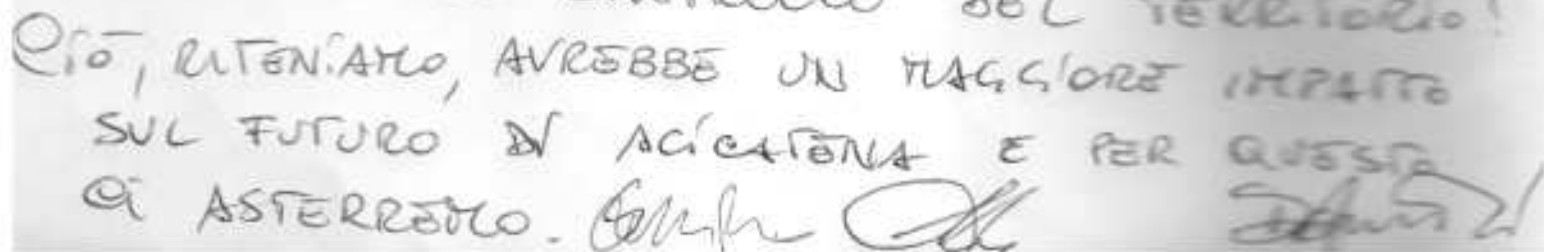 DEL TERRITORIO!
Ciò, RITENIAMO, AVREBBE UN MAGGIORE IMPATTO
SUL FUTURO DI ACICATENA E PER QUESTO
CI ASTERREMO.